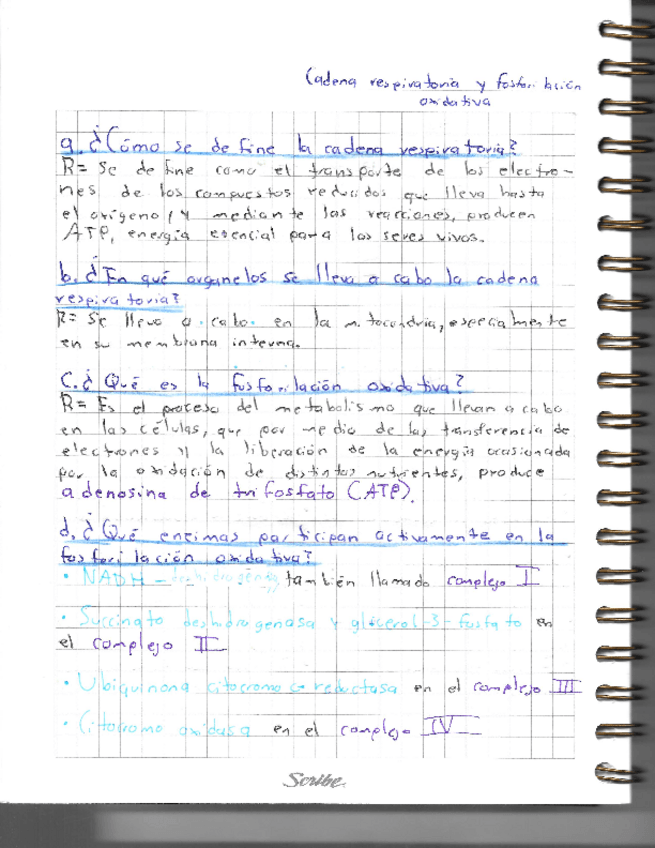 Cadena respiratoria y fosforilación
oxidativa
a. ¿Cómo se define la cadena respiratoria?
R= Se define como el transporte de los electro-
nes de los compuestos reducidos que lleva hasta
el oxígeno, y mediante las reacciones, producen
ATP, energía esencial para los seres vivos.
b. ¿En qué organelos se lleva a cabo la cadena
respiratoria?
R= Se lleva a cabo en la mitocondria, especialmente
en su membrana interna.
c. ¿Qué es la fosforilación oxidativa?
R= Es el proceso del metabolismo que llevan a cabo
en las células, que por medio de las transferencia de
electrones y la liberación de la energía ocasionada
por la oxidación de distintos nutrientes, produce
adenosina de trifosfato (ATP).
d. ¿Qué enzimas participan activamente en la
fosforilación oxidativa?
• NADH - deshidrogenasa también llamado complejo I
• Succinato deshidrogenasa y glicerol-3-fosfato en
el complejo II
• Ubiquinona citocromo c reductasa en el complejo III
• Citocromo oxidasa en el complejo IV
Scribe